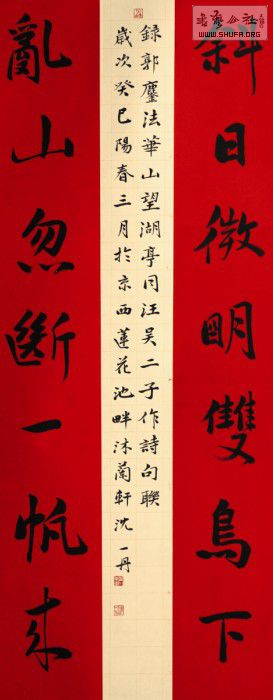 斜日微明雙鳥下
錄郭麐法華山望湖亭同汪吳二子作詩句聯
歲次癸巳陽春三月於京西蓮花池畔沐蘭軒沈一丹
亂山忽斷一帆來
WWW.SHUFA.ORG